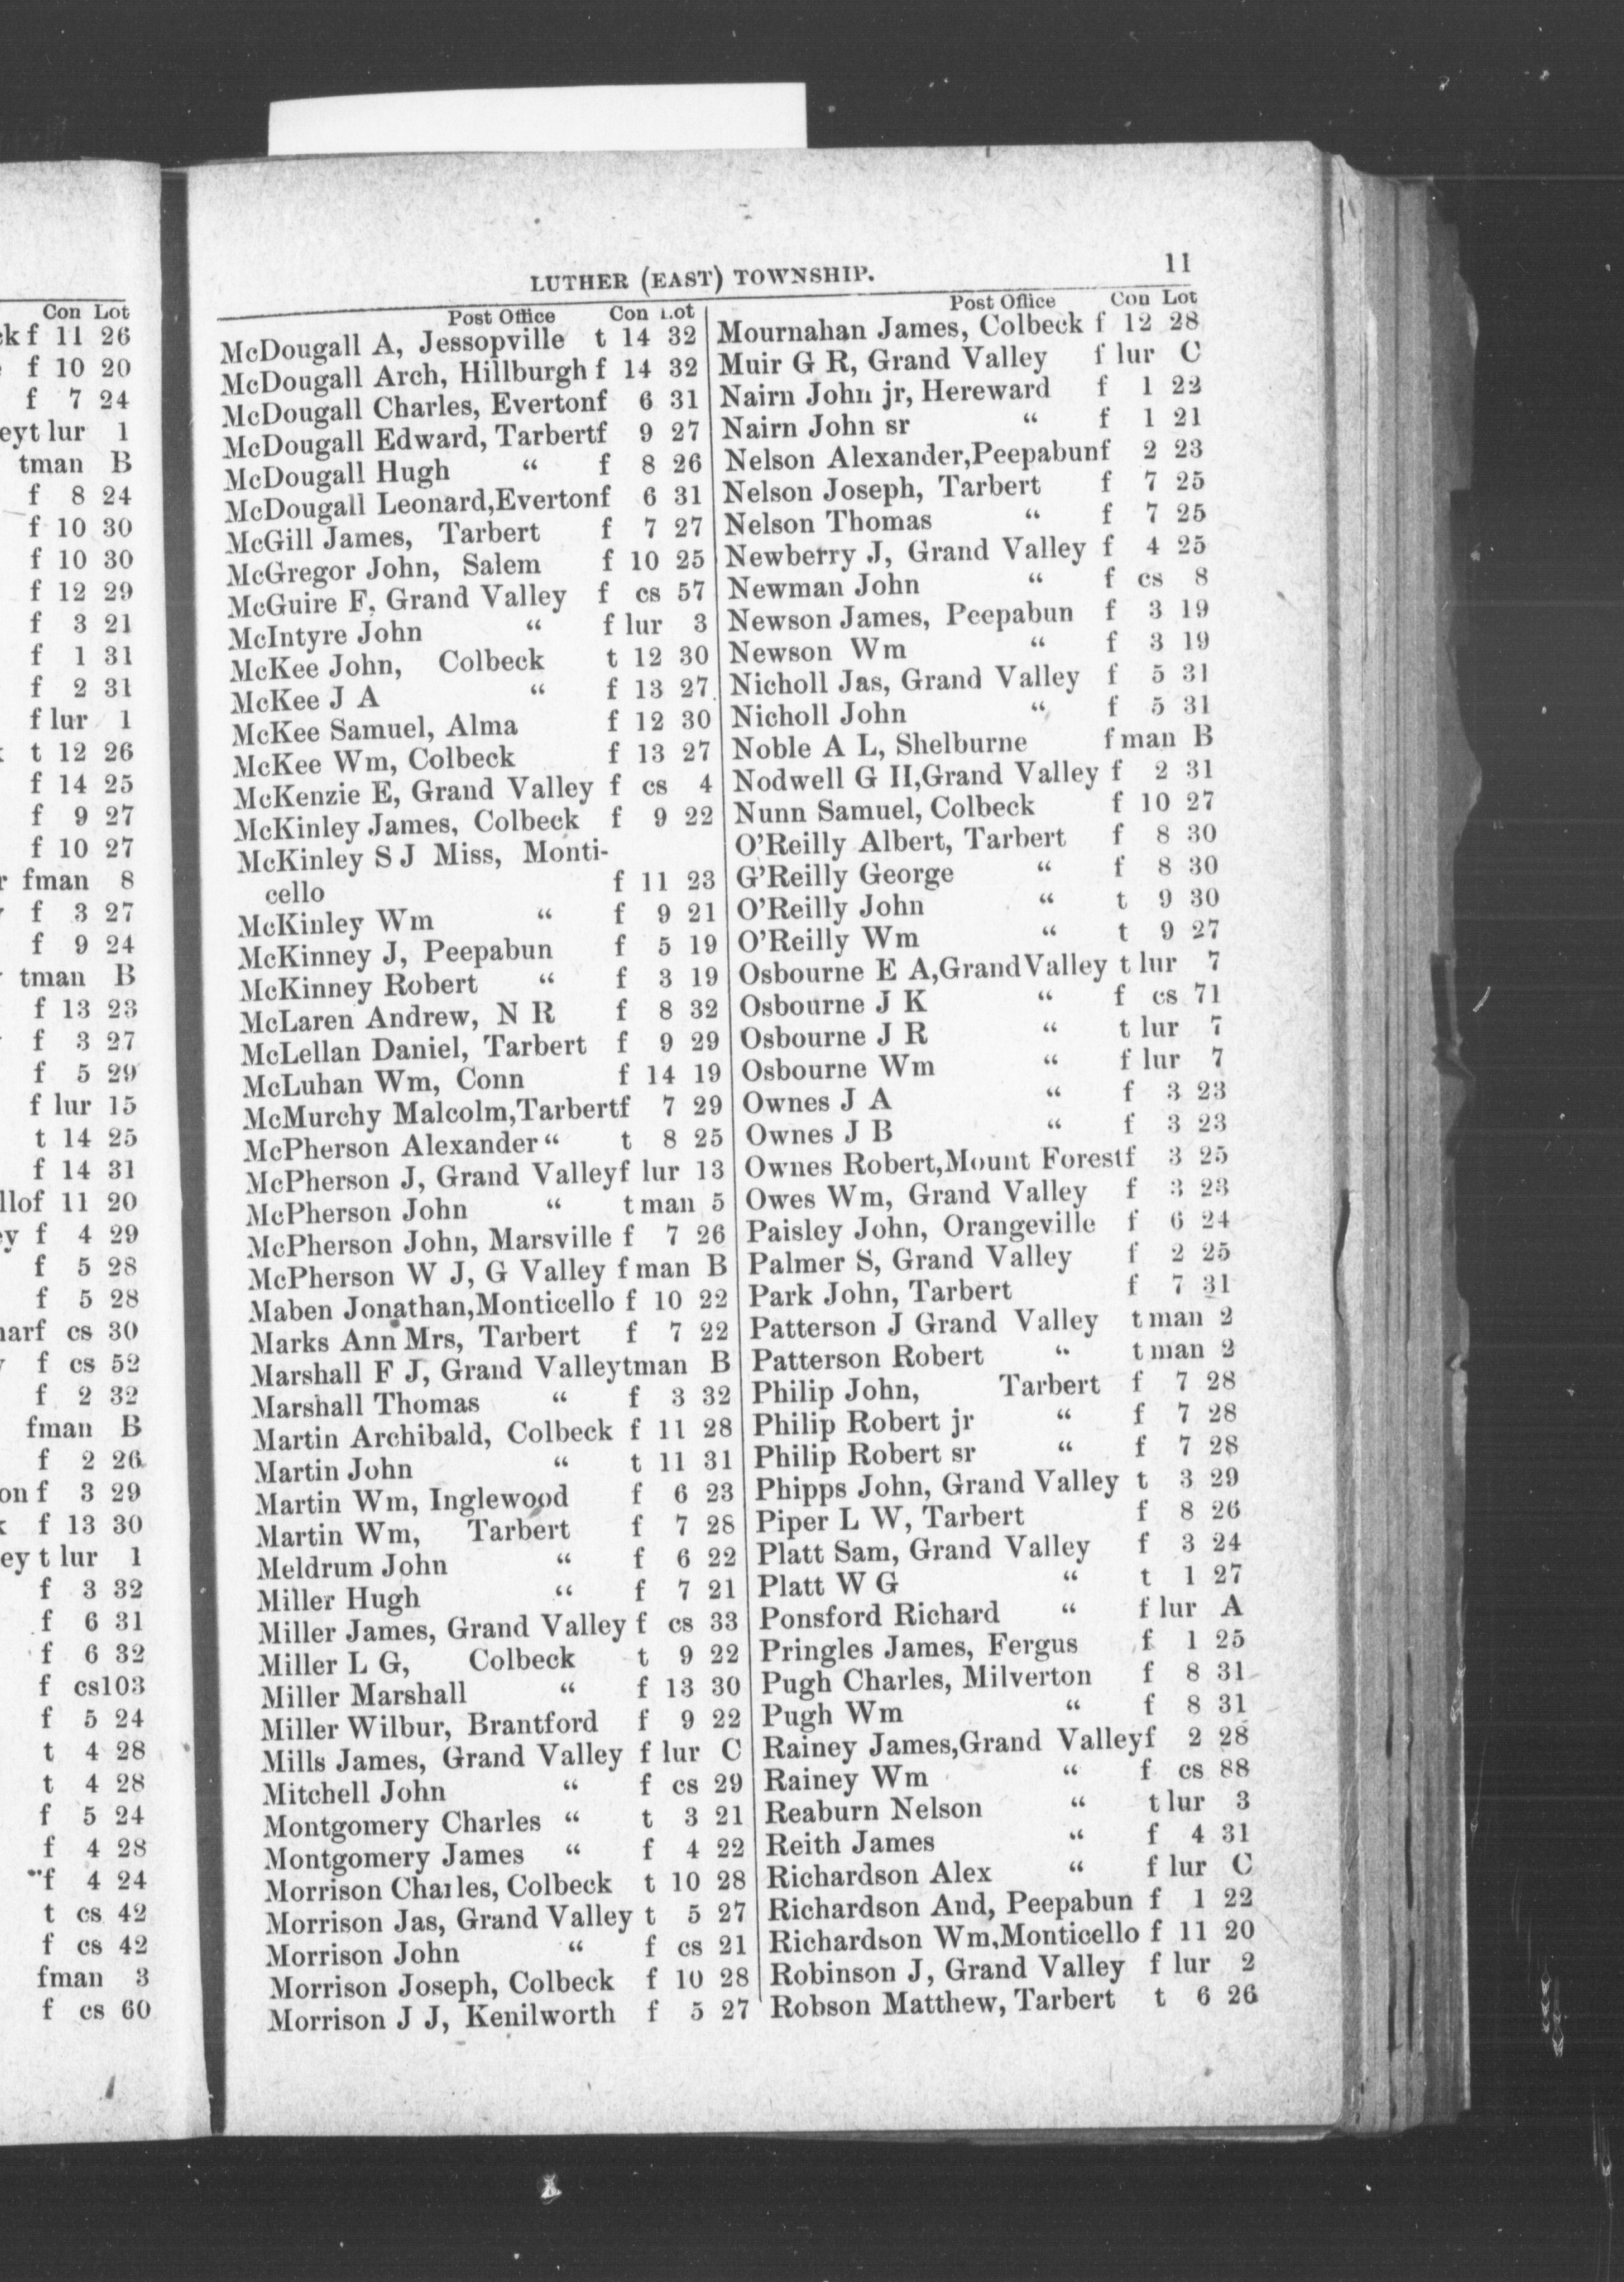 Con Lot
k f 11 26
f 10 20
f 7 24
eyt lur 1
tman B
f 8 24
f 10 30
f 10 30
f 12 29
f 3 21
f 1 31
f 2 31
f lur 1
t 12 26
f 14 25
f 9 27
f 10 27
r fman 8
f 3 27
f 9 24
tman B
f 13 23
f 3 27
f 5 29
f lur 15
t 14 25
f 14 31
llof 11 20
ey f 4 29
f 5 28
f 5 28
narf cs 30
f cs 52
f 2 32
fman B
f 2 26
on f 3 29
f 13 30
ey t lur 1
f 3 32
f 6 31
f 6 32
f cs103
f 5 24
t 4 28
t 4 28
f 5 24
f 4 28
f 4 24
t cs 42
f cs 42
fman 3
f cs 60
LUTHER (EAST) TOWNSHIP. 11
Post Office Con Lot
McDougall A, Jessopville t 14 32
McDougall Arch, Hillburgh f 14 32
McDougall Charles, Evertonf 6 31
McDougall Edward, Tarbertf 9 27
McDougall Hugh “ f 8 26
McDougall Leonard,Evertonf 6 31
McGill James, Tarbert f 7 27
McGregor John, Salem f 10 25
McGuire F, Grand Valley f cs 57
McIntyre John “ f lur 3
McKee John, Colbeck t 12 30
McKee J A “ f 13 27
McKee Samuel, Alma f 12 30
McKee Wm, Colbeck f 13 27
McKenzie E, Grand Valley f cs 4
McKinley James, Colbeck f 9 22
McKinley S J Miss, Monti-
cello f 11 23
McKinley Wm “ f 9 21
McKinney J, Peepabun f 5 19
McKinney Robert “ f 3 19
McLaren Andrew, N R f 8 32
McLellan Daniel, Tarbert f 9 29
McLuhan Wm, Conn f 14 19
McMurchy Malcolm,Tarbertf 7 29
McPherson Alexander “ t 8 25
McPherson J, Grand Valleyf lur 13
McPherson John “ t man 5
McPherson John, Marsville f 7 26
McPherson W J, G Valley f man B
Maben Jonathan,Monticello f 10 22
Marks Ann Mrs, Tarbert f 7 22
Marshall F J, Grand Valleytman B
Marshall Thomas “ f 3 32
Martin Archibald, Colbeck f 11 28
Martin John “ t 11 31
Martin Wm, Inglewood f 6 23
Martin Wm, Tarbert f 7 28
Meldrum John “ f 6 22
Miller Hugh “ f 7 21
Miller James, Grand Valley f cs 33
Miller L G, Colbeck t 9 22
Miller Marshall “ f 13 30
Miller Wilbur, Brantford f 9 22
Mills James, Grand Valley f lur C
Mitchell John “ f cs 29
Montgomery Charles “ t 3 21
Montgomery James “ f 4 22
Morrison Charles, Colbeck t 10 28
Morrison Jas, Grand Valley t 5 27
Morrison John “ f cs 21
Morrison Joseph, Colbeck f 10 28
Morrison J J, Kenilworth f 5 27
Post Office Con Lot
Mournahan James, Colbeck f 12 28
Muir G R, Grand Valley f lur C
Nairn John jr, Hereward f 1 22
Nairn John sr “ f 1 21
Nelson Alexander,Peepabunf 2 23
Nelson Joseph, Tarbert f 7 25
Nelson Thomas “ f 7 25
Newberry J, Grand Valley f 4 25
Newman John “ f cs 8
Newson James, Peepabun f 3 19
Newson Wm “ f 3 19
Nicholl Jas, Grand Valley f 5 31
Nicholl John “ f 5 31
Noble A L, Shelburne f man B
Nodwell G II,Grand Valley f 2 31
Nunn Samuel, Colbeck f 10 27
O'Reilly Albert, Tarbert f 8 30
G'Reilly George “ f 8 30
O'Reilly John “ t 9 30
O'Reilly Wm “ t 9 27
Osbourne E A,GrandValley t lur 7
Osbourne J K “ f cs 71
Osbourne J R “ t lur 7
Osbourne Wm “ f lur 7
Ownes J A “ f 3 23
Ownes J B “ f 3 23
Ownes Robert,Mount Forestf 3 25
Owes Wm, Grand Valley f 3 23
Paisley John, Orangeville f 6 24
Palmer S, Grand Valley f 2 25
Park John, Tarbert f 7 31
Patterson J Grand Valley t man 2
Patterson Robert “ t man 2
Philip John, Tarbert f 7 28
Philip Robert jr “ f 7 28
Philip Robert sr “ f 7 28
Phipps John, Grand Valley t 3 29
Piper L W, Tarbert f 8 26
Platt Sam, Grand Valley f 3 24
Platt W G “ t 1 27
Ponsford Richard “ f lur A
Pringles James, Fergus f 1 25
Pugh Charles, Milverton f 8 31
Pugh Wm “ f 8 31
Rainey James,Grand Valleyf 2 28
Rainey Wm “ f cs 88
Reaburn Nelson “ t lur 3
Reith James “ f 4 31
Richardson Alex “ f lur C
Richardson And, Peepabun f 1 22
Richardson Wm,Monticello f 11 20
Robinson J, Grand Valley f lur 2
Robson Matthew, Tarbert t 6 26